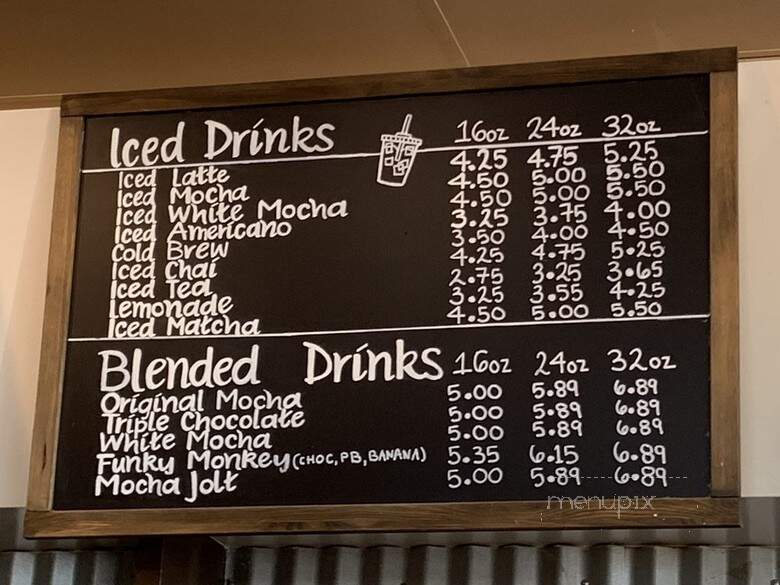 Iced Drinks 16oz 24oz 32oz
Iced Latte 4.25 4.75 5.25
Iced Mocha 4.50 5.00 5.50
Iced White Mocha 4.50 5.00 5.50
Iced Americano 3.25 3.75 4.00
Cold Brew 3.50 4.00 4.50
Iced Chai 4.25 4.75 5.25
Iced Tea 2.75 3.25 3.65
Lemonade 3.25 3.55 4.25
Iced Matcha 4.50 5.00 5.50
Blended Drinks 16oz 24oz 32oz
Original Mocha 5.00 5.89 6.89
Triple Chocolate 5.00 5.89 6.89
White Mocha 5.00 5.89 6.89
Funky Monkey (CHOC, PB, BANANA) 5.35 6.15 6.89
Mocha Jolt 5.00 5.89 6.89
menupix